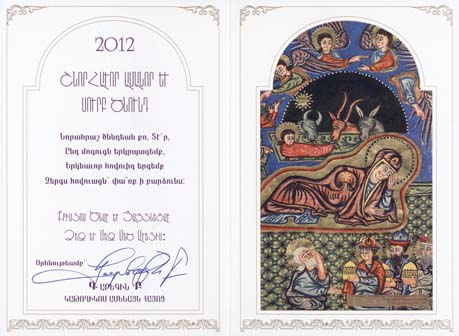 2012
Շնորհավոր Ամանոր և
Սուրբ Ծնունդ
Նորահրաշ ծննդեան քո, Տէ՛ր,
Ընդ մոգուցն երկրպագեմք,
Երկնաւոր հովուիդ երգեմք
Զերգս հովուացն՝ փա՜ռք ի բարձունս:
Քրիստոս Ծնաւ և Յայտնեցաւ
Ձեզ և Մեզ Մեծ Աւետիս:
Օրհնութեամբ՝
Գարեգին Բ
Կաթողիկոս Ամենայն Հայոց